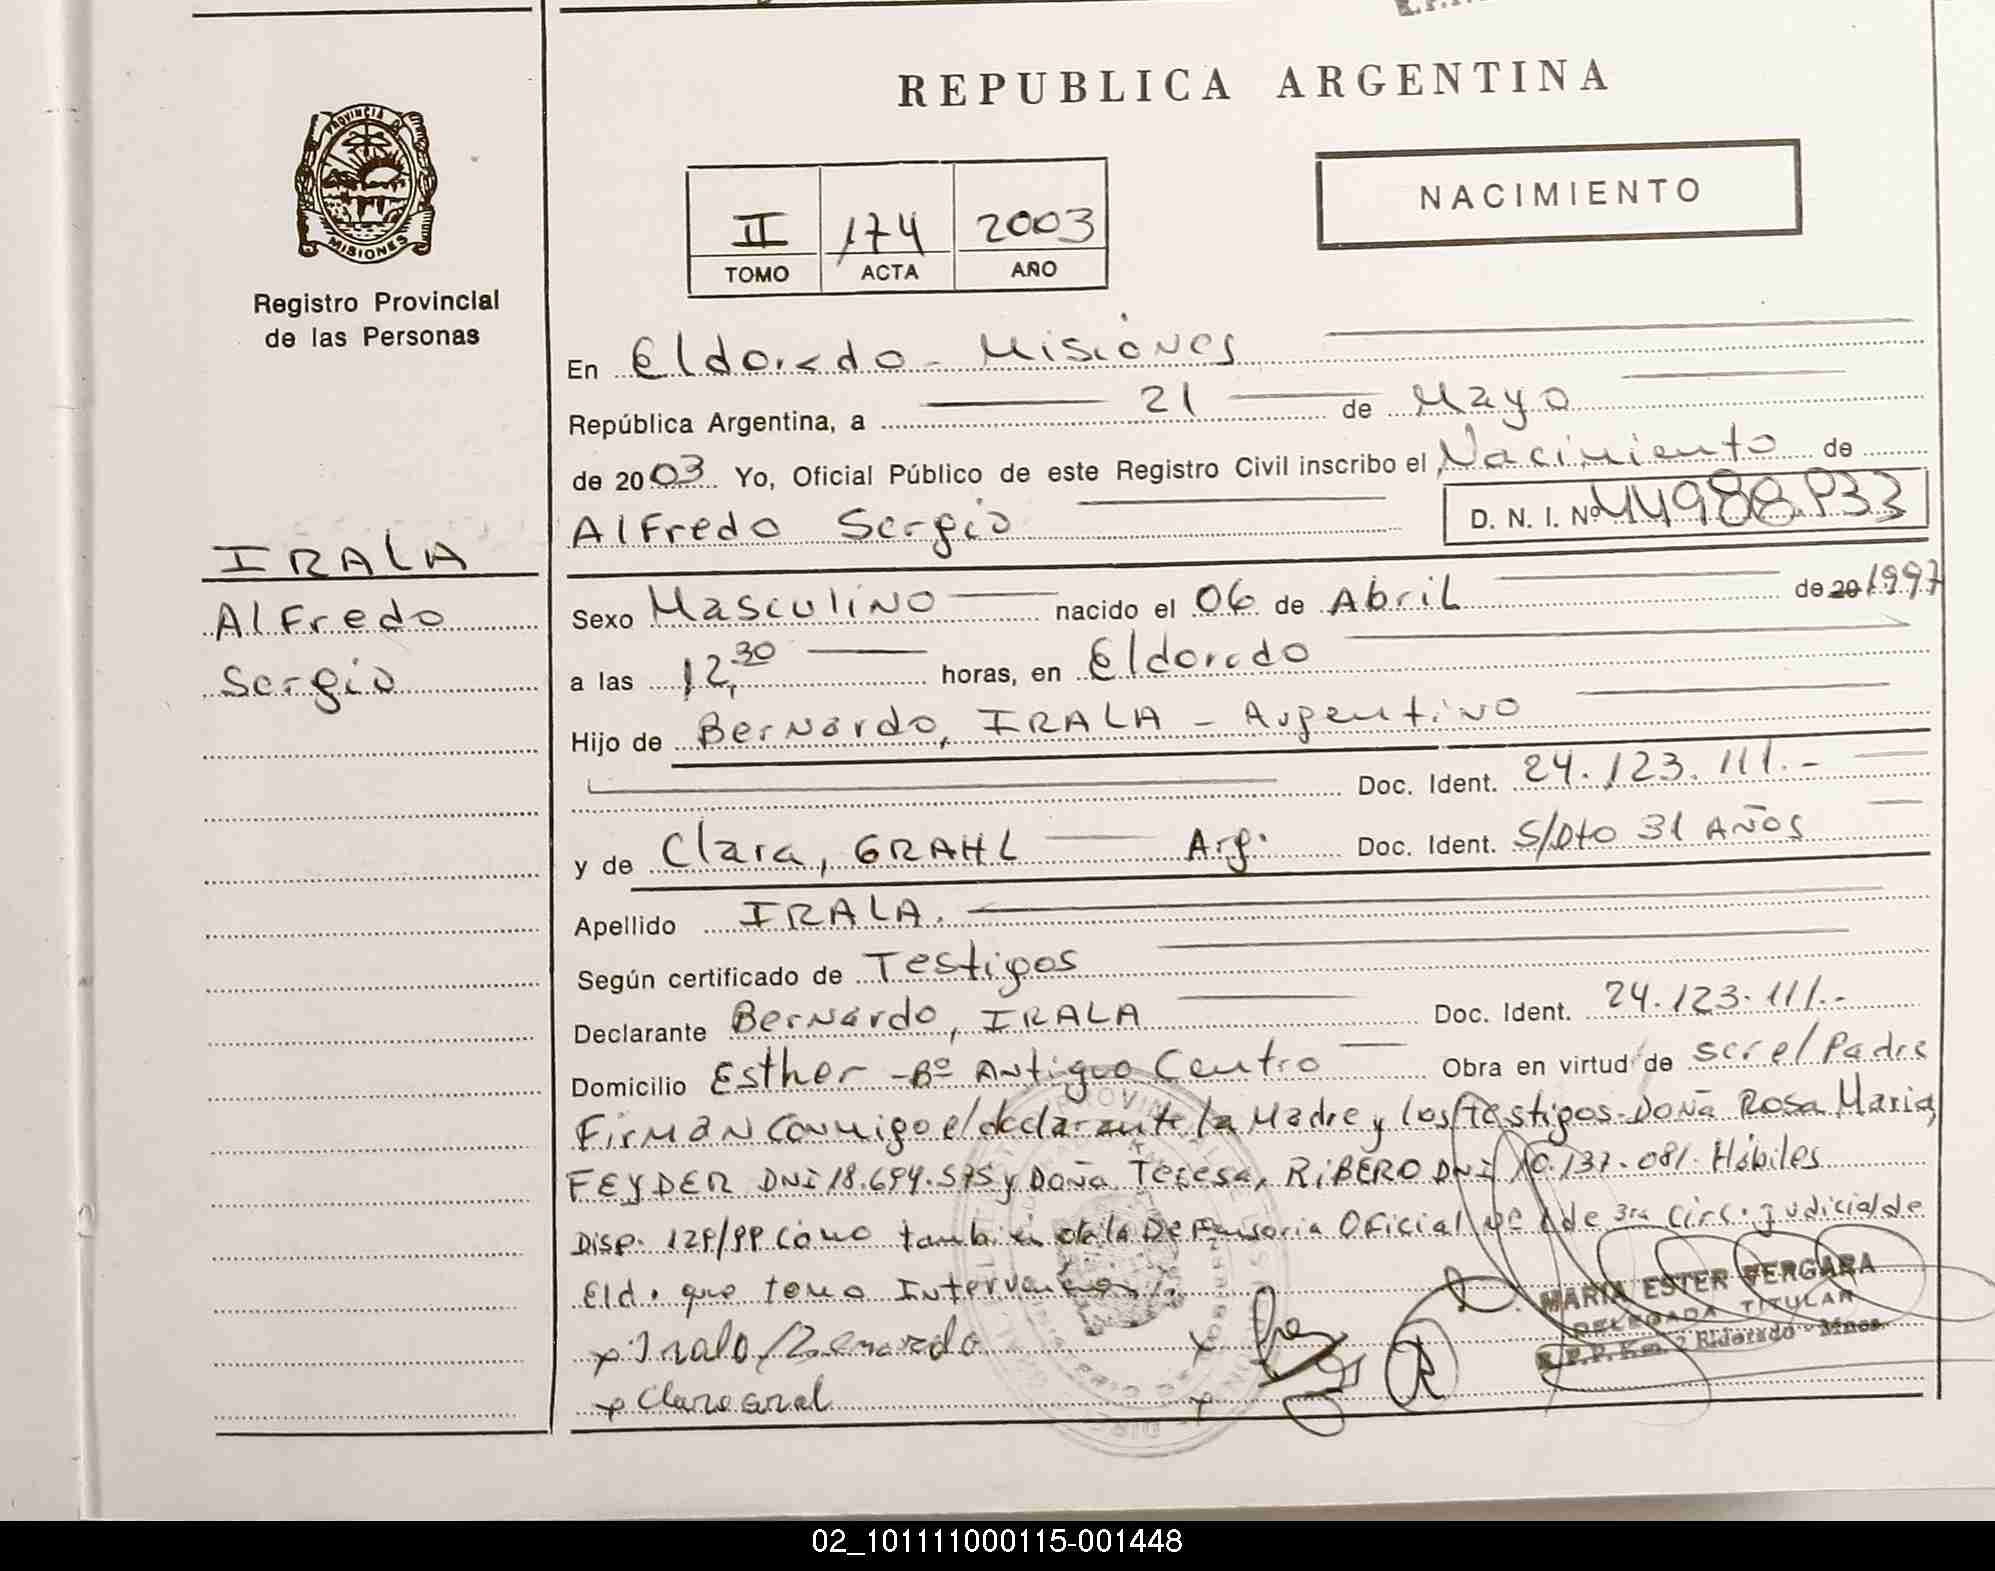 REPUBLICA ARGENTINA
PROVINCIA DE
MISIONES
Registro Provincial
de las Personas
IRALA
Alfredo
Sergio
II 174 2003
TOMO ACTA AÑO
NACIMIENTO
En Eldorado - Misiones
República Argentina, a 21 de Mayo
de 2003 Yo, Oficial Público de este Registro Civil inscribo el Nacimiento de
Alfredo Sergio D. N. I. Nº 44988.933
Sexo Masculino nacido el 06 de Abril de 20 1997
a las 12,30 horas, en Eldorado
Hijo de Bernardo, IRALA - Argentino
Doc. Ident. 24.123.111.-
y de Clara, GRAHL Arg. Doc. Ident. S/Dto 31 AÑOS
Apellido IRALA.
Según certificado de Testigos
Declarante Bernardo, IRALA Doc. Ident. 24.123.111.-
Domicilio Esther - Bº Antiguo Centro Obra en virtud de ser el Padre
Firman conmigo el declarante la Madre y los testigos Doña Rosa Maria,
FEYDER DNI 18.694.575 y Doña Teresa, RIBERO DNI 10.137.081. Hábiles
Disp. 129/99 como también de la Defensoria Oficial Nº 1 de 3ra Circ. Judicial de
Eld. que tomo Intervención
x Irala Bernardo x
x Clara Gral x
MARIA ESTER VERGARA
DELEGADA TITULAR
R.P.P. Km. 2 Eldorado - Mnes.
02_101111000115-001448